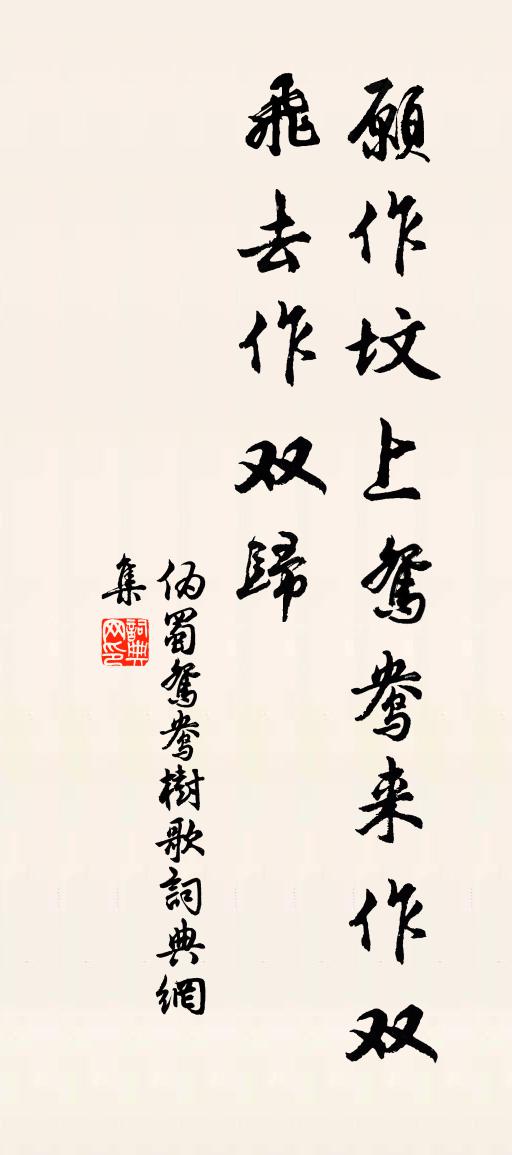 願作坟上鴛鴦来作双
飛去作双歸
伪蜀鴛鴦樹歌詞典網
集
詞典
网印